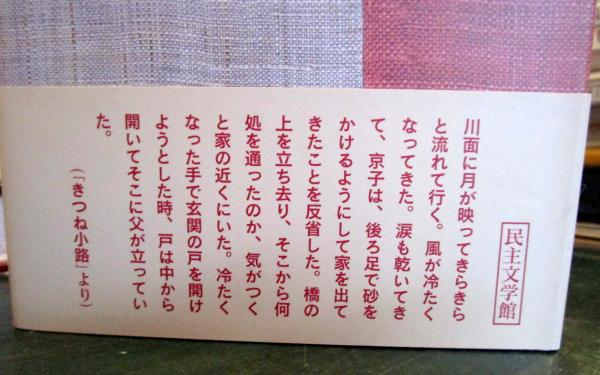 民主文学館
川面に月が映ってきらきら
と流れて行く。風が冷たく
なってきた。涙も乾いてき
て、京子は、後ろ足で砂を
かけるようにして家を出て
きたことを反省した。橋の
上を立ち去り、そこから何
処を通ったのか、気がつく
と家の近くにいた。冷たく
なった手で玄関の戸を開け
ようとした時、戸は中から
開いてそこに父が立ってい
た。
(「きつね小路」より)